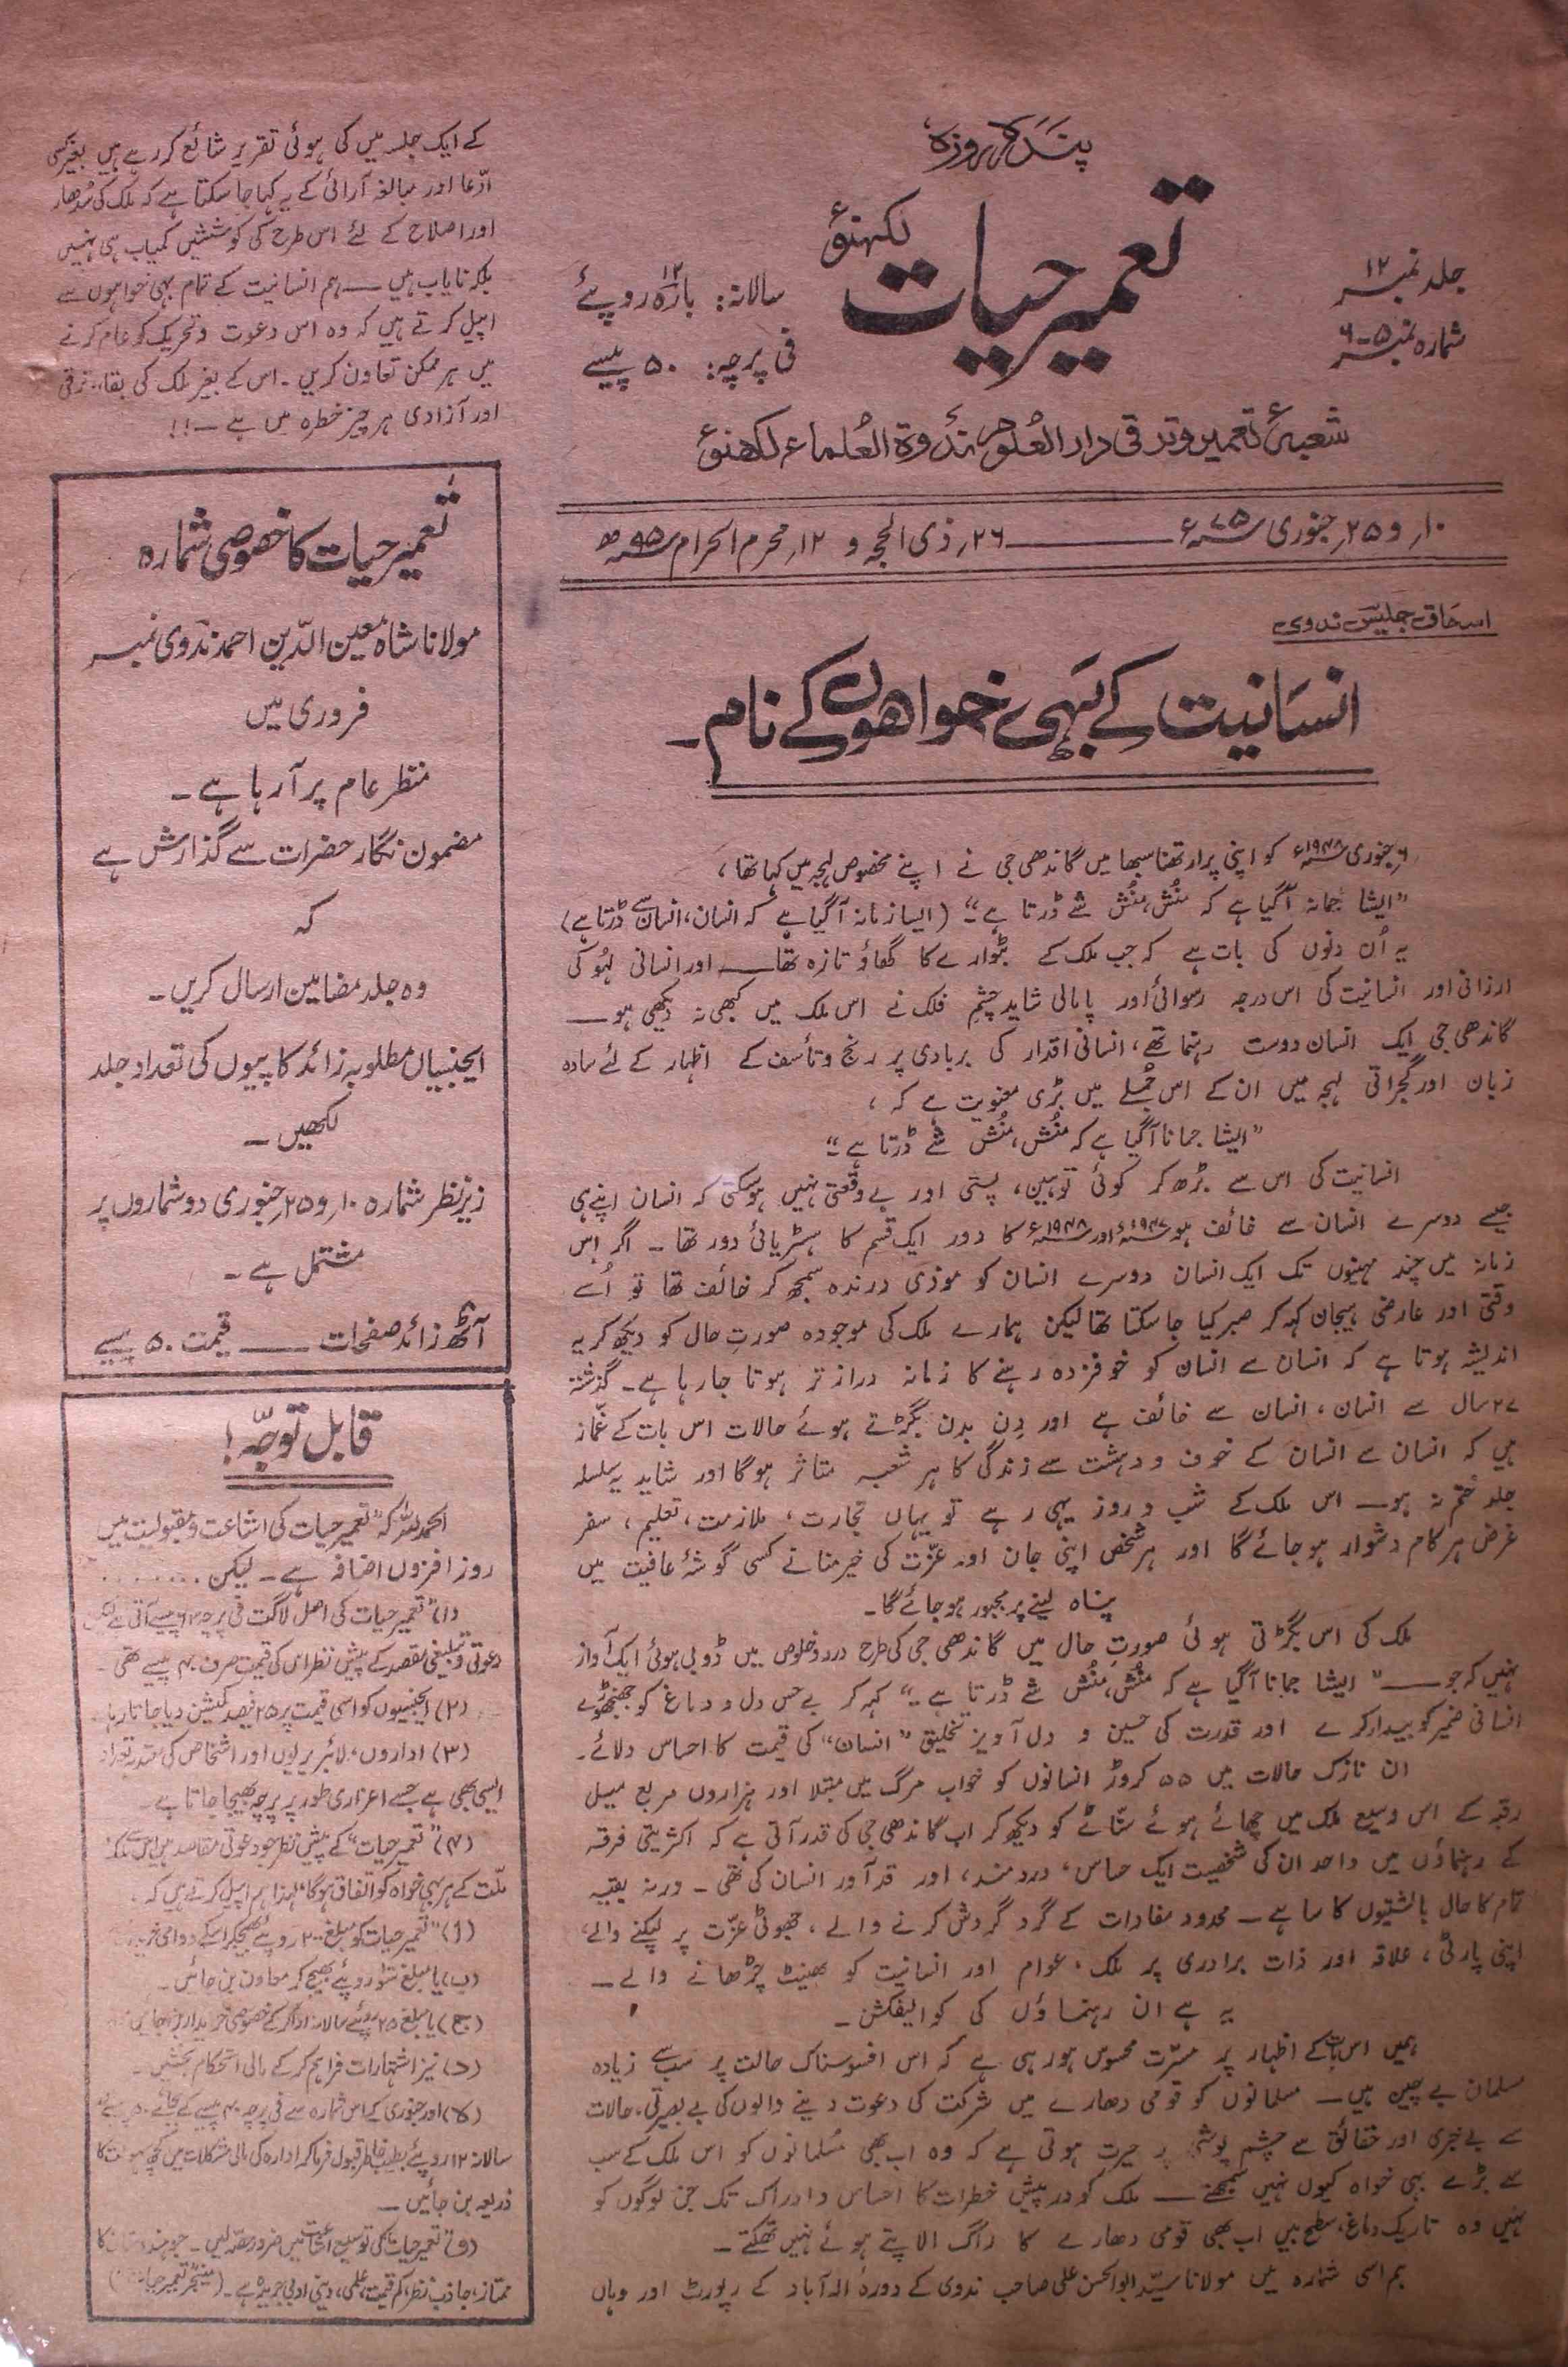 پندرہ روزہ
تعمیر حیات لکھنؤ
جلد نمبر ۱۲
شمارہ نمبر ۵-۶
سالانہ: بارہ ۱۲ روپئے
فی پرچہ: ۵۰ پیسے
شعبۂ تعمیر و ترقی دار العلوم ندوۃ العلماء لکھنؤ
۱۰؍ و ۲۵؍ جنوری ۷۵ء ـــــ ۲۶؍ ذی الحجہ و ۱۲؍ محرم الحرام ۹۵ھ
اسحاق جلیس ندوی
انسانیت کے بہی خواھوں کے نام۔
۶؍ جنوری ۱۹۴۸ء کو اپنی پرارتھنا سبھا میں گاندھی جی نے اپنے مخصوص لہجہ میں کہا تھا،
"ایشا جمانہ آگیا ہے کہ منُش، منُش شے ڈرتا ہے" (ایسا زمانہ آگیا ہے کہ انسان، انسان سے ڈرتا ہے)
یہ اُن دنوں کی بات ہے کہ جب ملک کے بٹوارے کا گھاؤ تازہ تھا ـــ اور انسانی لہُو کی
ارزانی اور انسانیت کی اس درجہ رسوائی اور پامالی شاید چشمِ فلک نے اس ملک میں کبھی نہ دیکھی ہو ـــ
گاندھی جی ایک انسان دوست رہنما تھے، انسانی اقدار کی بربادی پر رنج و تأسف کے اظہار کے لئے سادہ
زبان اور گجراتی لہجہ میں ان کے اس جُملے میں بڑی معنویت ہے کہ،
"ایشا جمانا آگیا ہے کہ منُش، منُش شے ڈرتا ہے"
انسانیت کی اس سے بڑھ کر کوئی توہین، پستی اور بے وقعتی نہیں ہوسکتی کہ انسان اپنے ہی
جیسے دوسرے انسان سے خائف ہو ۱۹۴۷ء اور ۱۹۴۸ء کا دور ایک قسم کا ہسٹریائی دور تھا ۔ اگر اس
زمانہ میں چند مہینوں تک ایک انسان دوسرے انسان کو موذی درندہ سمجھ کر خائف تھا تو اُسے
وقتی اور عارضی ہیجان کہہ کر صبر کیا جا سکتا تھا لیکن ہمارے ملک کی موجودہ صورتِ حال کو دیکھ کر یہ
اندیشہ ہوتا ہے کہ انسان سے انسان کو خوفزدہ رہنے کا زمانہ دراز تر ہوتا جا رہا ہے ۔ گذشتہ
۲۷ سال سے انسان، انسان سے خائف ہے اور دن بدن بگڑتے ہوئے حالات اس بات کے غمّاز
ہیں کہ انسان سے انسان کے خوف و دہشت سے زندگی کا ہر شعبہ متاثر ہوگا اور شاید یہ سلسلہ
جلد ختم نہ ہو ـــ اس ملک کے شب و روز یہی رہے تو یہاں تجارت، ملازمت، تعلیم، سفر
غرض ہر کام دشوار ہو جائے گا اور ہر شخص اپنی جان اور عزّت کی خیر منانے کسی گوشۂ عافیت میں
پناہ لینے پر مجبور ہو جائے گا۔
ملک کی اس بگڑتی ہوئی صورتِ حال میں گاندھی جی کی طرح درد و خلوص میں ڈوبی ہوئی ایک آواز
نہیں کہ جو ـــ "ایشا جمانا آگیا ہے کہ منُش، منُش شے ڈرتا ہے" کہہ کر بے حس دل و دماغ کو جھنجھوڑے
انسانی ضمیر کو بیدار کرے اور قدرت کی حسین و دل آویز تخلیق "انسان" کی قیمت کا احساس دلائے۔
ان نازک حالات میں ۵۵ کروڑ انسانوں کو خواب مرگ میں مبتلا اور ہزاروں مربع میل
رقبہ کے اس وسیع ملک میں چھائے ہوئے سنّاٹے کو دیکھ کر اب گاندھی جی کی قدر آتی ہے کہ اکثریتی فرقہ
کے رہنماؤں میں واحد ان کی شخصیت ایک حساس، دردمند، اور قد آور انسان کی تھی ۔ ورنہ بقیہ
تمام کا حال بالشتیوں کا سا ہے ۔ محدود مفادات کے گرد گردش کرنے والے، جھوٹی عزّت پر لپکنے والے،
اپنی پارٹی، علاقہ اور ذات برادری پر ملک، عوام اور انسانیت کو بھینٹ چڑھانے والے ـــ
یہ ہے ان رہنماؤں کی کوالیفکشن ۔
ہمیں اس بات کے اظہار پر مسرّت محسوس ہو رہی ہے کہ اس افسوسناک حالت پر سب سے زیادہ
مسلمان بے چین ہیں ـــ مسلمانوں کو قومی دھارے میں شرکت کی دعوت دینے والوں کی بے بصیرتی، حالات
سے بے خبری اور حقائق سے چشم پوشی پر حیرت ہوتی ہے کہ وہ اب بھی مُسلمانوں کو اس ملک کے سب
سے بڑے بہی خواہ کیوں نہیں سمجھتے ـــ ملک کو درپیش خطرات کا احساس و ادراک تک جن لوگوں کو
نہیں وہ تاریک دماغ، سطح بیں اب بھی قومی دھارے کا راگ الاپتے ہوئے نہیں تھکتے ۔
ہم اسی شمارہ میں مولانا سیّد ابو الحسن علی صاحب ندوی کے دورۂ الہ آباد کے رپورٹ اور وہاں
کے ایک جلسہ میں کی ہوئی تقریر شائع کر رہے ہیں بغیر کسی
ادّعا اور مبالغہ آرائی کے یہ کہا جا سکتا ہے کہ ملک کی سُدھار
اور اصلاح کے لئے اس طرح کی کوششیں کمیاب ہی نہیں
بلکہ نایاب ہیں ـــ ہم انسانیت کے تمام بہی خواہوں سے
اپیل کرتے ہیں کہ وہ اس دعوت و تحریک کو عام کرنے
میں ہر ممکن تعاون کریں ۔ اس کے بغیر ملک کی بقاء، ترقی
اور آزادی ہر چیز خطرہ میں ہے ـــ !!
تعمیر حیات کا خصوصی شمارہ
مولانا شاہ معین الدّین احمد ندوی نمبر
فروری میں
منظر عام پر آ رہا ہے ۔
مضمون نگار حضرات سے گذارش ہے
کہ
وہ جلد مضامین ارسال کریں ۔
ایجنسیاں مطلوبہ زائد کاپیوں کی تعداد جلد
لکھیں ۔
زیرِ نظر شمارہ ۱۰؍ و ۲۵؍ جنوری دو شماروں پر
مشتمل ہے ۔
آٹھ زائد صفحات ـــ قیمت ۵۰ پیسے
قابل توجّہ!
الحمد للہ کہ "تعمیر حیات کی اشاعت و مقبولیت میں
روز افزوں اضافہ ہے ۔ لیکن ........
(۱) "تعمیر حیات کی اصل لاگت فی پرچہ ۶۳ پیسے آتی ہے لیکن
دعوتی و تبلیغی مقصد کے پیش نظر اس کی قیمت صرف ۴۰ پیسے تھی ۔
(۲) ایجنسیوں کو اسی قیمت پر ۲۵ فیصد کمیشن دیا جاتا رہا ۔
(۳) اداروں، لائبریریوں اور اشخاص کی معتدبہ تعداد
ایسی بھی ہے جسے اعزازی طور پر پرچہ بھیجا جاتا ہے ۔
(۴) "تعمیر حیات" کے پیش نظر جو دعوتی مقاصد ہیں اس سے ملک و
ملّت کے ہر بہی خواہ کو اتفاق ہوگا، لہٰذا ہم اپیل کرتے ہیں کہ،
(أ) "تعمیر حیات کو مبلغ ۲۰۰ روپئے بھیجکر اسکے دوامی
(ب) یا مبلغ سَو روپئے بھیج کر معاون بن جائیں ۔
(ج) یا مبلغ ۲۵ روپئے سالانہ ادا کرکے خصوصی خریدار بن جائیں
(د) نیز اشتہارات فراہم کرکے مالی استحکام بخشیں ۔
(ہ) اور جنوری کے اس شمارہ سے فی پرچہ ۴۰ پیسے کے بجائے ۵۰ پیسے
سالانہ ۱۲ روپئے بطیب خاطر قبول فرما کر ادارہ کی مالی مشکلات میں کچھ سہولت کا
ذریعہ بن جائیں ـــ
(و) تعمیر حیات کی توسیع اشاعت میں ضرور حصّہ لیں ۔ جو ہندوستان کا
ممتاز، جاذب نظر، کم قیمت، علمی، دینی ادبی جریدہ ہے ۔ (منیجر تعمیر حیات)